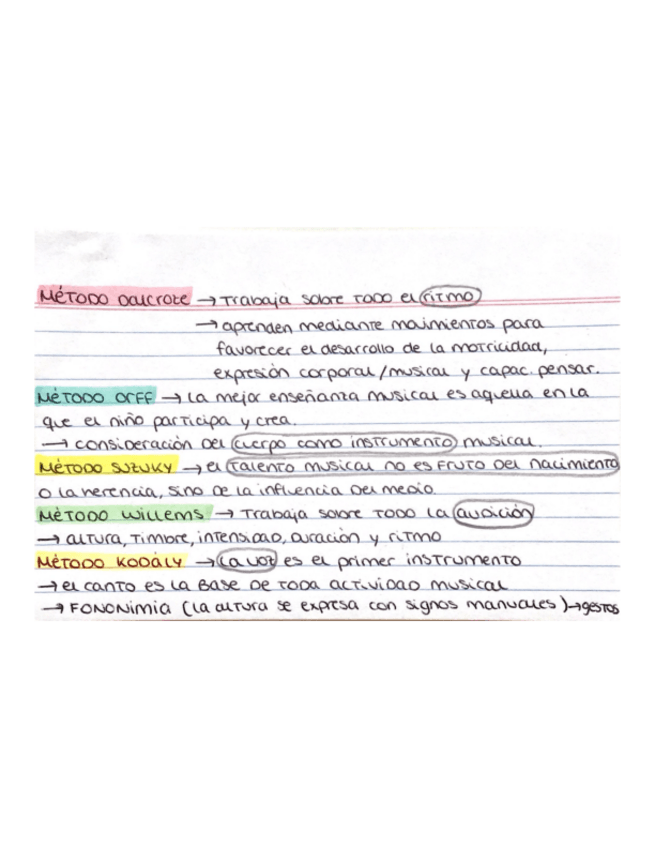 MÉTODO Dalcroze → Trabaja sobre TODO el ritmo
→ aprenden mediante movimientos para
favorecer el desarrollo de la motricidad,
expresión corporal/musical y capac. pensar.
MÉTODO ORFF → La mejor enseñanza musical es aquella en la
que el niño participa y crea.
→ consideración del cuerpo como instrumento musical.
MÉTODO SUZUKY → el talento musical no es fruto del nacimiento
o la herencia, sino de la influencia del medio.
MÉTODO WILLEMS → Trabaja sobre todo la audición
→ altura, timbre, intensidad, duración y ritmo
MÉTODO KODÁLY → La voz es el primer instrumento
→ el canto es la base de toda actividad musical
→ FONONIMIA (la altura se expresa con signos manuales) → gestos